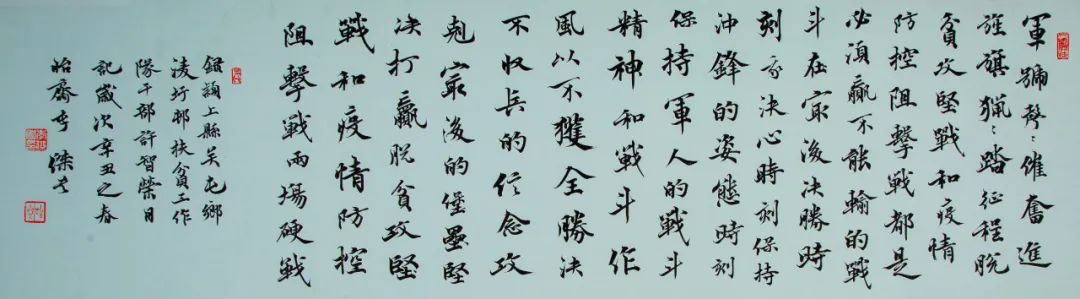 軍號聲聲催奮進
旌旗獵獵踏征程脫
貧攻堅戰和疫情
防控阻擊戰都是
必須贏不能輸的戰
斗在最後決勝時
刻我決心時刻保持
沖鋒的姿態時刻
保持軍人的戰斗
精神和戰斗作
風以不獲全勝決
不收兵的信念攻
剋最後的堡壘堅
決打贏脫貧攻堅
戰和疫情防控
阻擊戰兩場硬戰
錄潁上縣吳屯鄉
淩圩邨扶貧工作
隊干部許智榮日
記歲次辛丑之春
於